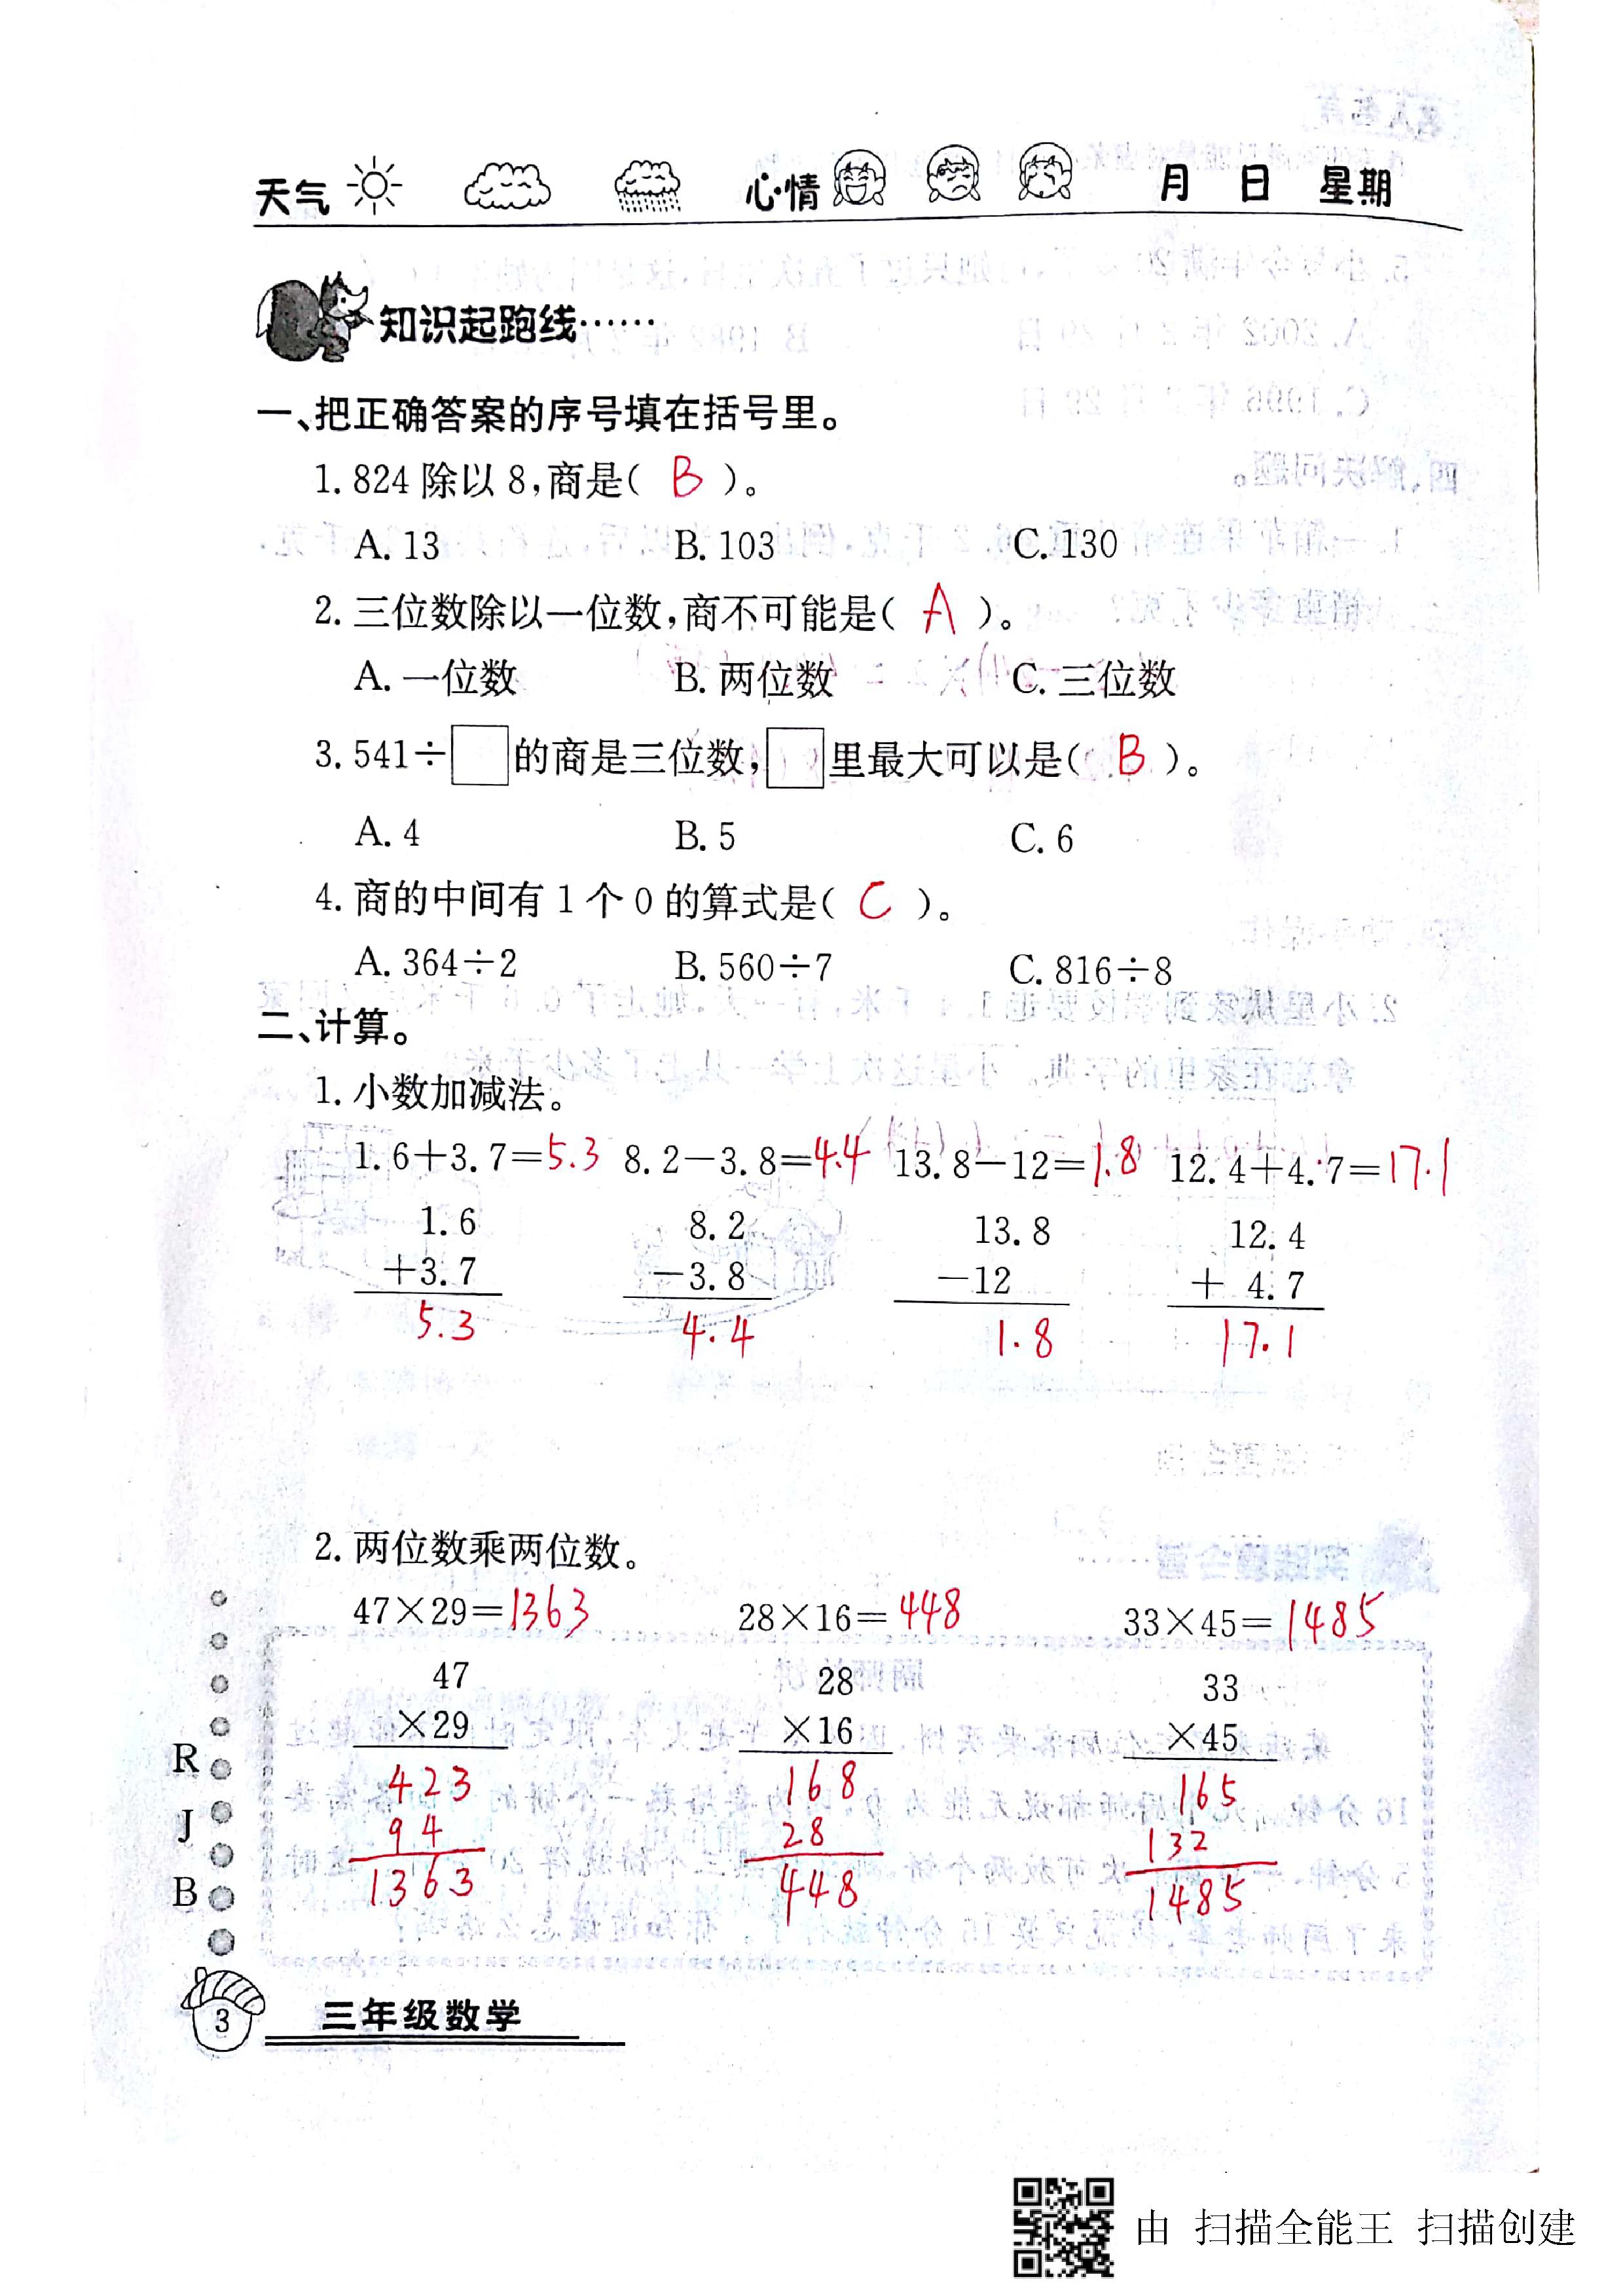 天气 心情 月 日 星期
知识起跑线……
一、把正确答案的序号填在括号里。
1. 824 除以 8,商是( B )。
A. 13 B. 103 C. 130
2. 三位数除以一位数,商不可能是( A )。
A. 一位数 B. 两位数 C. 三位数
3. 541÷□的商是三位数,□里最大可以是( B )。
A. 4 B. 5 C. 6
4. 商的中间有 1 个 0 的算式是( C )。
A. 364÷2 B. 560÷7 C. 816÷8
二、计算。
1. 小数加减法。
1.6+3.7=5.3 8.2-3.8=4.4 13.8-12=1.8 12.4+4.7=17.1
1.6 8.2 13.8 12.4
+3.7 -3.8 -12 + 4.7
5.3 4.4 1.8 17.1
2. 两位数乘两位数。
47×29=1363 28×16=448 33×45=1485
47 28 33
×29 ×16 ×45
423 168 165
94 28 132
1363 448 1485
R
J
B
3 三年级数学
由 扫描全能王 扫描创建